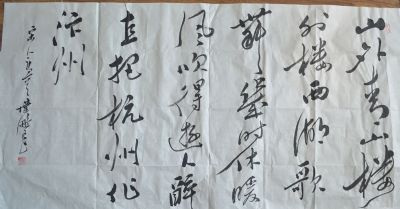 山外青山楼
外楼西湖歌
舞几时休暖
风吹得遊人醉
直把杭州作
汴州